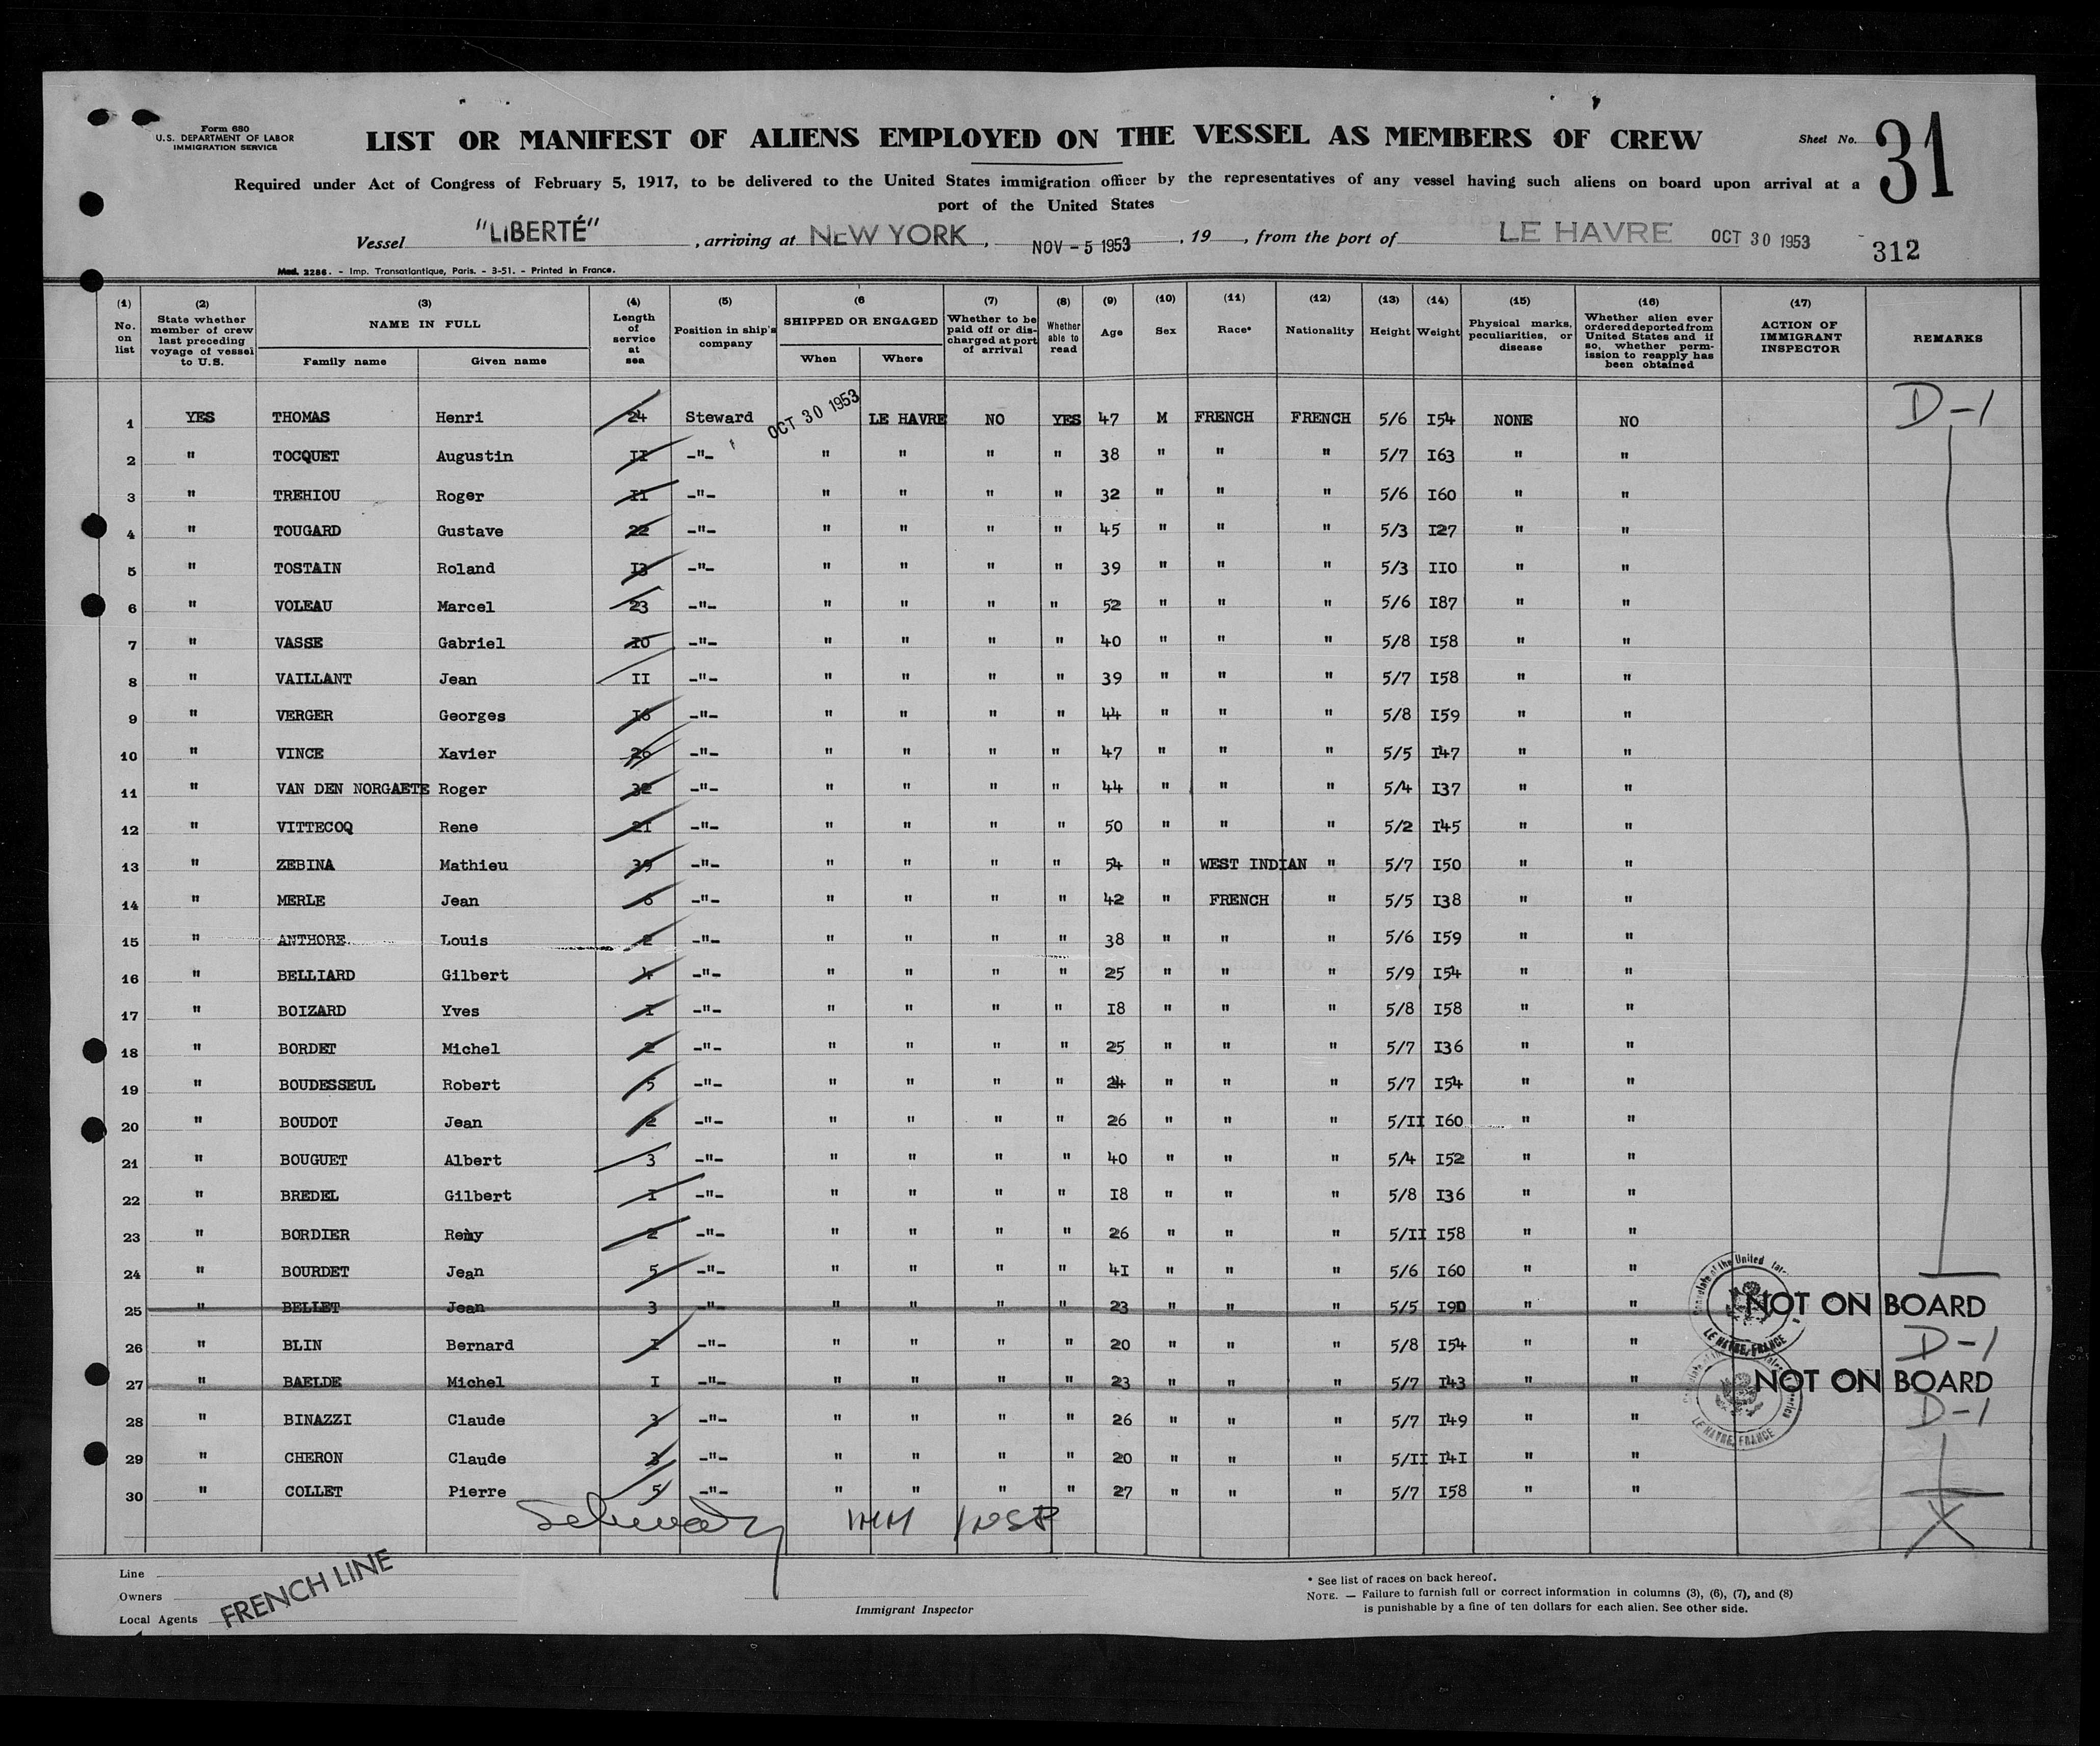 Form 680
U.S. DEPARTMENT OF LABOR
IMMIGRATION SERVICE
LIST OR MANIFEST OF ALIENS EMPLOYED ON THE VESSEL AS MEMBERS OF CREW
Sheet No. 31
Required under Act of Congress of February 5, 1917, to be delivered to the United States immigration officer by the representatives of any vessel having such aliens on board upon arrival at a
port of the United States
Vessel "LIBERTÉ", arriving at NEW YORK, NOV - 5 1953, 19, from the port of LE HAVRE OCT 30 1953 312
Mod. 2286. - Imp. Transatlantique, Paris. - 3-51. - Printed in France.
(1) No. on list (2) State whether member of crew last preceding voyage of vessel to U.S. (3) NAME IN FULL Family name Given name (4) Length of service at sea (5) Position in ship's company (6 SHIPPED OR ENGAGED When Where (7) Whether to be paid off or discharged at port of arrival (8) Whether able to read (9) Age (10) Sex (11) Race* (12) Nationality (13) Height (14) Weight (15) Physical marks, peculiarities, or disease (16) Whether alien ever ordered deported from United States and if so, whether permission to reapply has been obtained (17) ACTION OF IMMIGRANT INSPECTOR REMARKS
1 YES THOMAS Henri 24 Steward OCT 30 1953 LE HAVRE NO YES 47 M FRENCH FRENCH 5/6 I54 NONE NO D-1
2 " TOCQUET Augustin II -"- " " " " 38 " " " 5/7 I63 " "
3 " TREHIOU Roger II -"- " " " " 32 " " " 5/6 I60 " "
4 " TOUGARD Gustave 22 -"- " " " " 45 " " " 5/3 I27 " "
5 " TOSTAIN Roland I3 -"- " " " " 39 " " " 5/3 II0 " "
6 " VOLEAU Marcel 23 -"- " " " " 52 " " " 5/6 I87 " "
7 " VASSE Gabriel I0 -"- " " " " 40 " " " 5/8 I58 " "
8 " VAILLANT Jean II -"- " " " " 39 " " " 5/7 I58 " "
9 " VERGER Georges I6 -"- " " " " 44 " " " 5/8 I59 " "
10 " VINCE Xavier 26 -"- " " " " 47 " " " 5/5 I47 " "
11 " VAN DEN NORGAETE Roger 32 -"- " " " " 44 " " " 5/4 I37 " "
12 " VITTECOQ Rene 2I -"- " " " " 50 " " " 5/2 I45 " "
13 " ZEBINA Mathieu 39 -"- " " " " 54 " WEST INDIAN " 5/7 I50 " "
14 " MERLE Jean 6 -"- " " " " 42 " FRENCH " 5/5 I38 " "
15 " ANTHORE Louis 2 -"- " " " " 38 " " " 5/6 I59 " "
16 " BELLIARD Gilbert 4 -"- " " " " 25 " " " 5/9 I54 " "
17 " BOIZARD Yves I -"- " " " " I8 " " " 5/8 I58 " "
18 " BORDET Michel 2 -"- " " " " 25 " " " 5/7 I36 " "
19 " BOUDESSEUL Robert 5 -"- " " " " 24 " " " 5/7 I54 " "
20 " BOUDOT Jean 2 -"- " " " " 26 " " " 5/II I60 " "
21 " BOUGUET Albert 3 -"- " " " " 40 " " " 5/4 I52 " "
22 " BREDEL Gilbert I -"- " " " " I8 " " " 5/8 I36 " "
23 " BORDIER Remy 2 -"- " " " " 26 " " " 5/II I58 " "
24 " BOURDET Jean 5 -"- " " " " 4I " " " 5/6 I60 " "
25 " BELLET Jean 3 -"- " " " " 23 " " " 5/5 I90 " " NOT ON BOARD
26 " BLIN Bernard I -"- " " " " 20 " " " 5/8 I54 " " D-1
27 " BAELDE Michel I -"- " " " " 23 " " " 5/7 I43 " " NOT ON BOARD
28 " BINAZZI Claude 3 -"- " " " " 26 " " " 5/7 I49 " " D-1
29 " CHERON Claude 3 -"- " " " " 20 " " " 5/II I4I " "
30 " COLLET Pierre 5 -"- " " " " 27 " " " 5/7 I58 " "
IMM INSP
Line
Owners
Local Agents
FRENCH LINE
Immigrant Inspector
* See list of races on back hereof.
NOTE. — Failure to furnish full or correct information in columns (3), (6), (7), and (8)
is punishable by a fine of ten dollars for each alien. See other side.
LE HAVRE, FRANCE
LE HAVRE, FRANCE